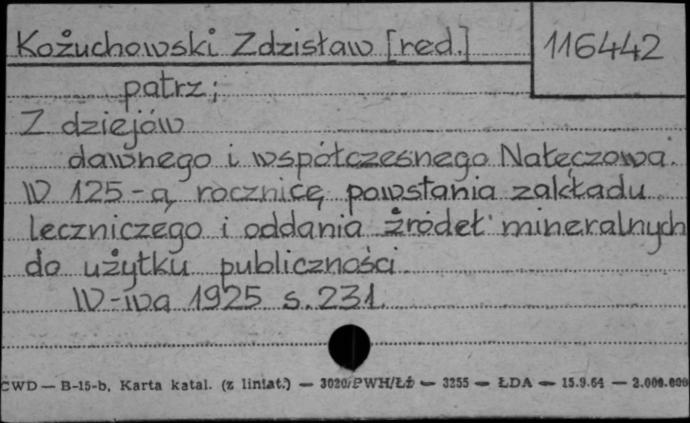 Kożuchowski Zdzisław [red.]
116442
patrz;
Z dziejów
dawnego i współczesnego Nałęczowa.
W 125-ą rocznicę powstania zakładu
leczniczego i oddania źródeł mineralnych
do użytku publiczności.
W-wa 1925 s. 231
CWD — B-15-b, Karta katal. (z liniat.) — 3020/PWH/Łż — 3255 — ŁDA — 15.9.64 — 2.000.000